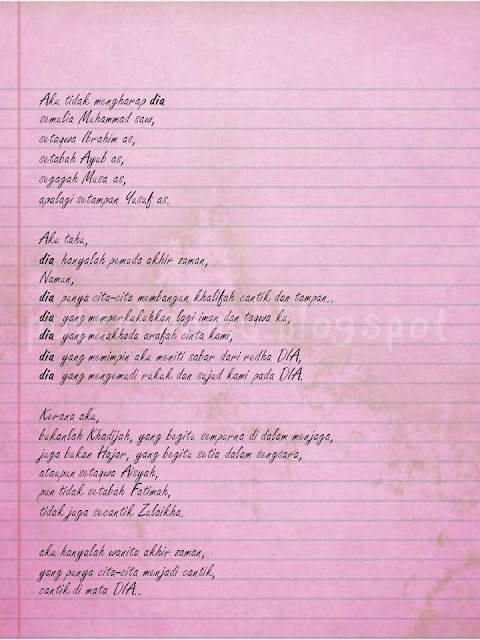 Aku tidak mengharap dia
semulia Muhammad saw,
setaqwa Ibrahim as,
setabah Ayub as,
segagah Musa as,
apalagi setampan Yusuf as.
Aku tahu,
dia hanyalah pemuda akhir zaman,
Namun,
dia punya cita-cita membangun khalifah cantik dan tampan..
dia yang memperkukuhkan lagi iman dan taqwa ku,
dia yang menakhoda arafah cinta kami,
dia yang memimpin aku meniti sabar dari redha DIA,
dia yang mengemudi rukuk dan sujud kami pada DIA.
Kerana aku,
bukanlah Khadijah, yang begitu sempurna di dalam menjaga,
juga bukan Hajar, yang begitu setia dalam sengsara,
ataupun setaqwa Aisyah,
pun tidak setabah Fatimah,
tidak juga secantik Zulaikha.
aku hanyalah wanita akhir zaman,
yang punya cita-cita menjadi cantik,
cantik di mata DIA..